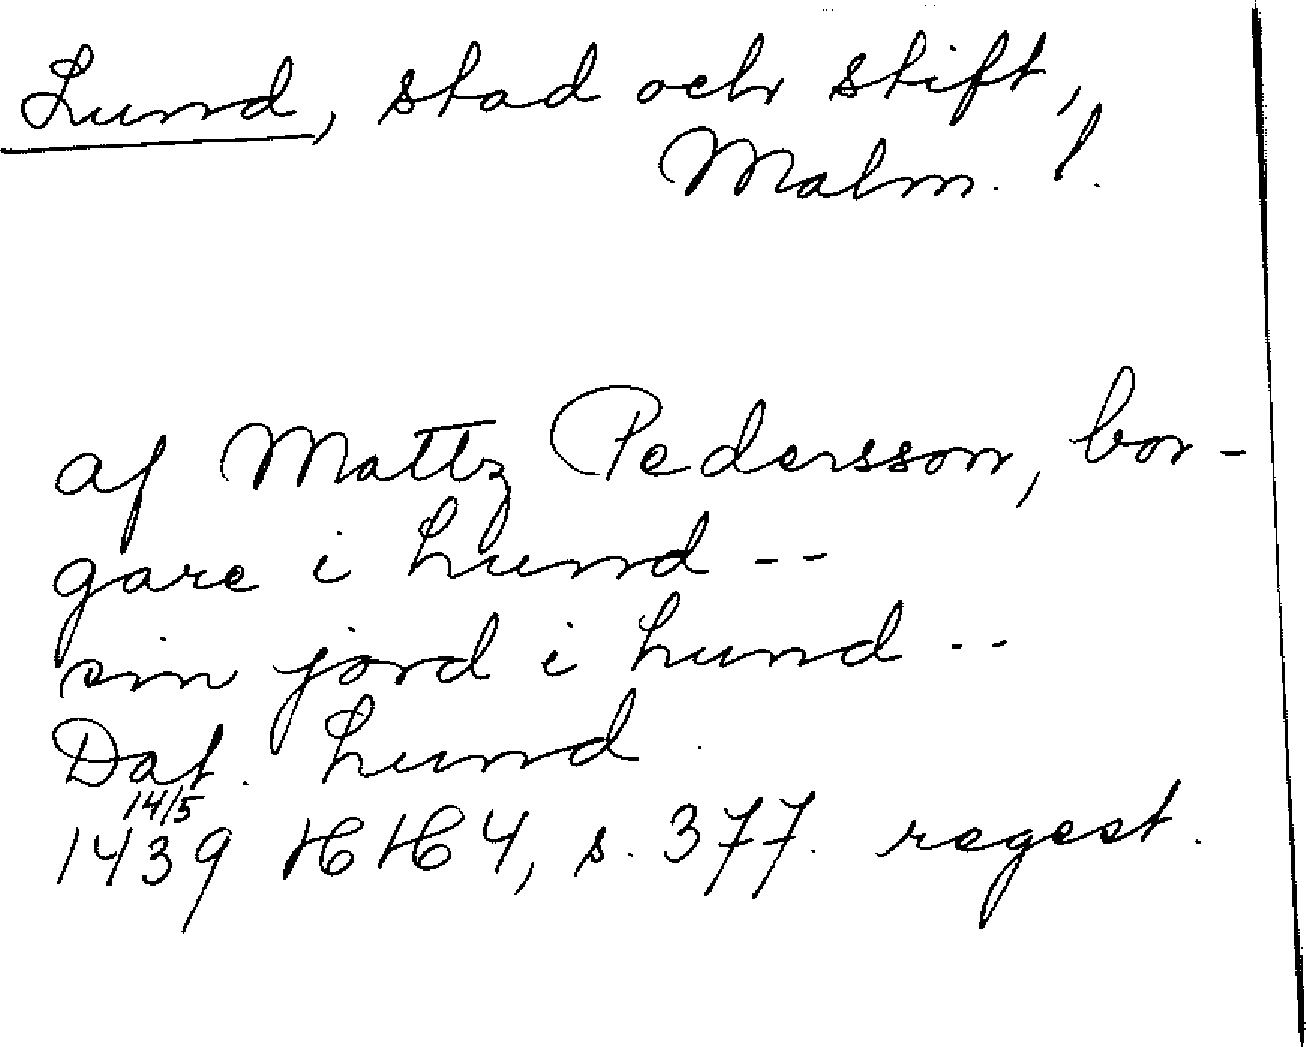 Lund, stad och stift,
Malm. l.
af Mattz Pedersson, bor-
gare i Lund --
sin jord i Lund --
Dat. Lund
14/5
1439 HH 4, s. 377. regest.